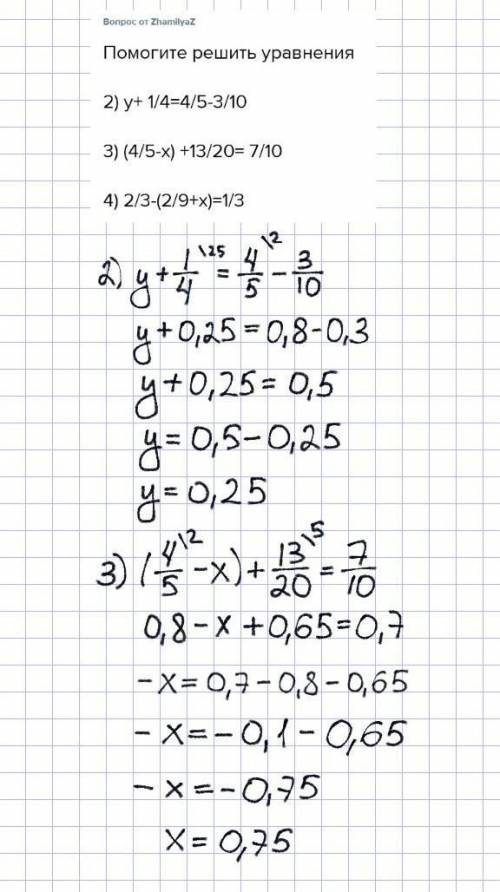 Вопрос от ZhamilyaZ
Помогите решить уравнения
2) y+ 1/4=4/5-3/10
3) (4/5-x) +13/20= 7/10
4) 2/3-(2/9+x)=1/3
2) y + 1/4 \25 = 4/5 \2 - 3/10
y + 0,25 = 0,8 - 0,3
y + 0,25 = 0,5
y = 0,5 - 0,25
y = 0,25
3) (4/5 \2 - x) + 13/20 \5 = 7/10
0,8 - x + 0,65 = 0,7
- x = 0,7 - 0,8 - 0,65
- x = - 0,1 - 0,65
- x = - 0,75
x = 0,75